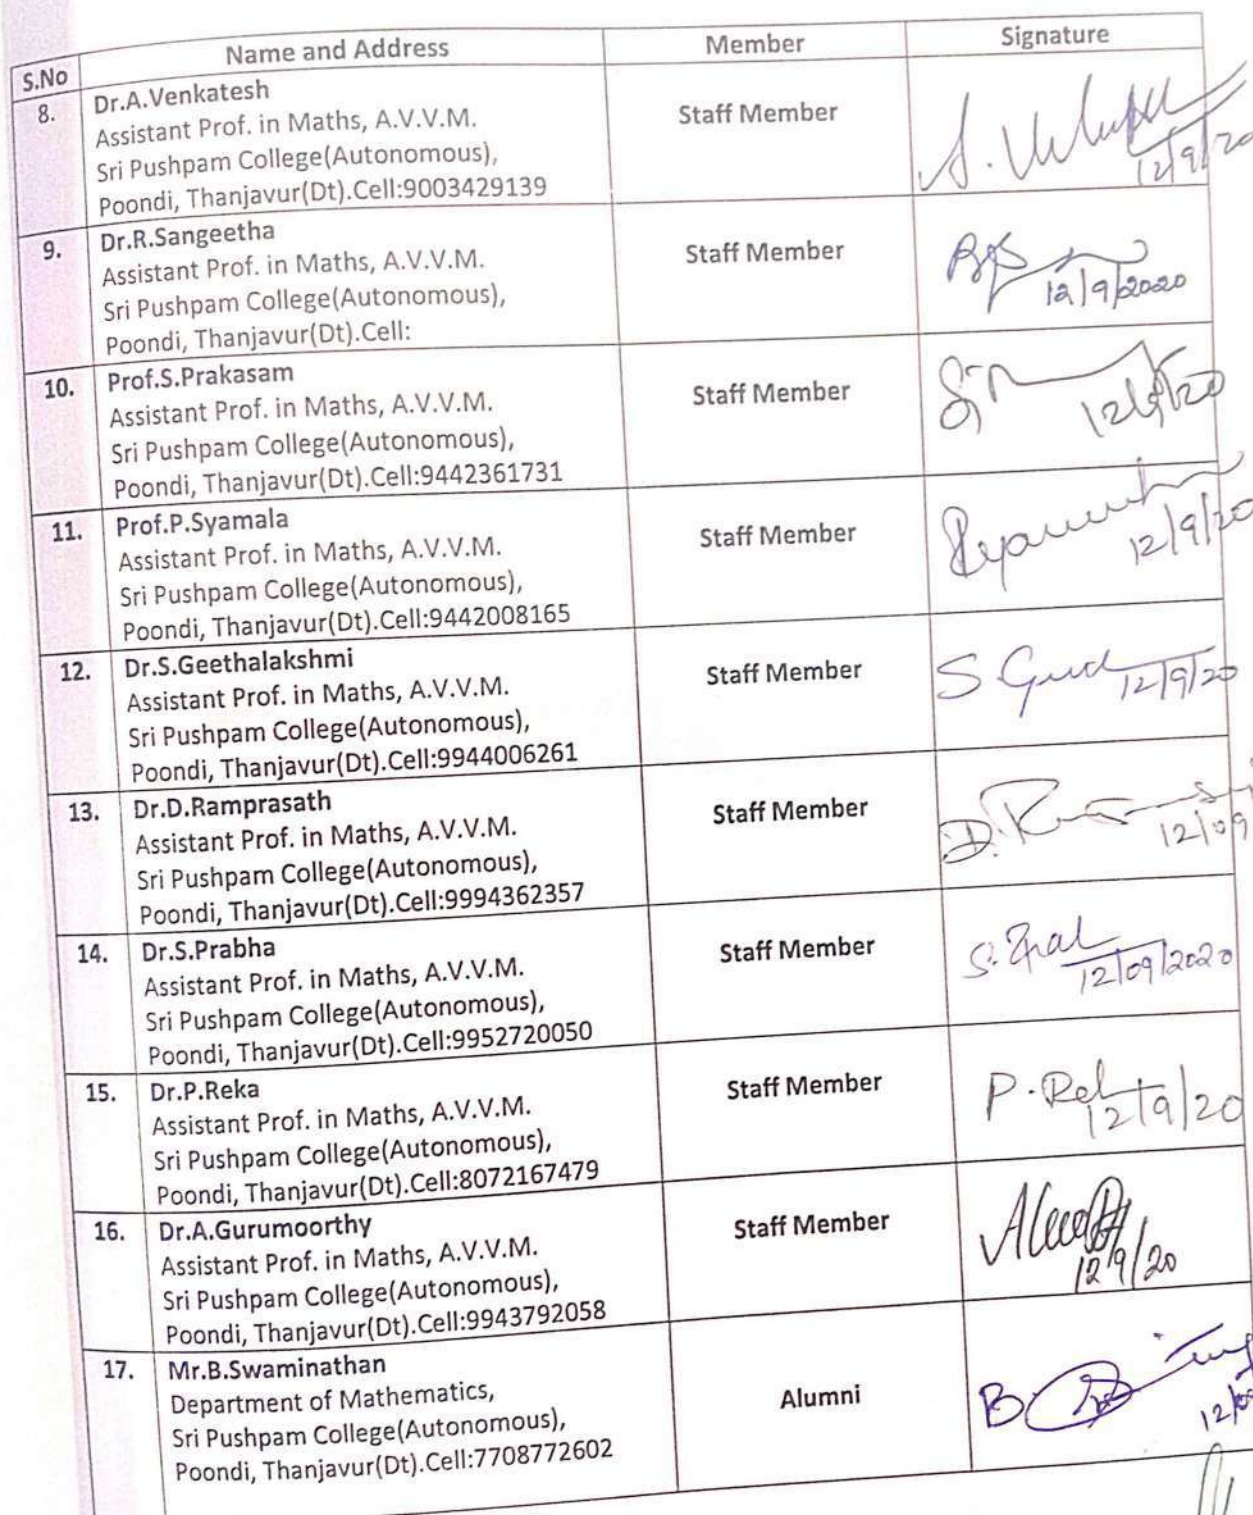 S.No Name and Address Member Signature
8. Dr.A.Venkatesh
Assistant Prof. in Maths, A.V.V.M.
Sri Pushpam College(Autonomous),
Poondi, Thanjavur(Dt).Cell:9003429139
Staff Member
12/9/20
9. Dr.R.Sangeetha
Assistant Prof. in Maths, A.V.V.M.
Sri Pushpam College(Autonomous),
Poondi, Thanjavur(Dt).Cell:
Staff Member
12/9/2020
10. Prof.S.Prakasam
Assistant Prof. in Maths, A.V.V.M.
Sri Pushpam College(Autonomous),
Poondi, Thanjavur(Dt).Cell:9442361731
Staff Member
12/9/20
11. Prof.P.Syamala
Assistant Prof. in Maths, A.V.V.M.
Sri Pushpam College(Autonomous),
Poondi, Thanjavur(Dt).Cell:9442008165
Staff Member
12/9/20
12. Dr.S.Geethalakshmi
Assistant Prof. in Maths, A.V.V.M.
Sri Pushpam College(Autonomous),
Poondi, Thanjavur(Dt).Cell:9944006261
Staff Member
12/9/20
13. Dr.D.Ramprasath
Assistant Prof. in Maths, A.V.V.M.
Sri Pushpam College(Autonomous),
Poondi, Thanjavur(Dt).Cell:9994362357
Staff Member
12/09
14. Dr.S.Prabha
Assistant Prof. in Maths, A.V.V.M.
Sri Pushpam College(Autonomous),
Poondi, Thanjavur(Dt).Cell:9952720050
Staff Member
12/09/2020
15. Dr.P.Reka
Assistant Prof. in Maths, A.V.V.M.
Sri Pushpam College(Autonomous),
Poondi, Thanjavur(Dt).Cell:8072167479
Staff Member
12/9/20
16. Dr.A.Gurumoorthy
Assistant Prof. in Maths, A.V.V.M.
Sri Pushpam College(Autonomous),
Poondi, Thanjavur(Dt).Cell:9943792058
Staff Member
12/9/20
17. Mr.B.Swaminathan
Department of Mathematics,
Sri Pushpam College(Autonomous),
Poondi, Thanjavur(Dt).Cell:7708772602
Alumni